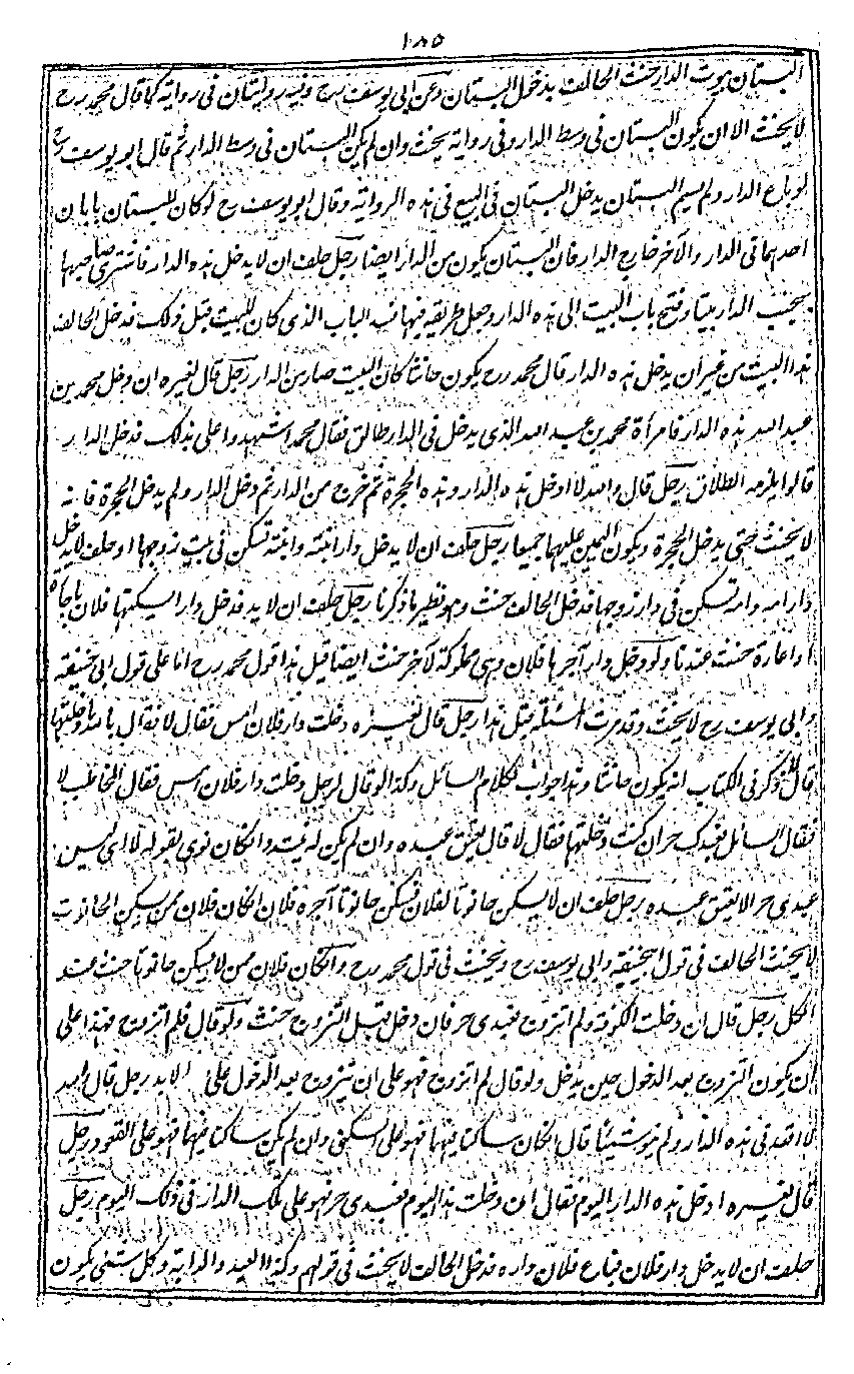 ١٨٥
البستان بيوت الدار حنث الحالف بدخول البستان وعن ابي يوسف رح فيه روايتان في رواية كما قال محمد رح
لا يحنث الا ان يكون البستان في وسط الدار وفي رواية يحنث وان لم يكن البستان في وسط الدار ثم قال ابو يوسف رح
لو باع الدار ولم يسم البستان يدخل البستان في البيع في هذه الرواية وقال ابو يوسف رح لو كان للبستان بابان
احدهما في الدار والآخر خارج الدار فان البستان يكون من الدار ايضا رجل حلف ان لا يدخل هذه الدار فاشترى صاحبها
بجنب الدار بيتا وفتح باب البيت الى هذه الدار وجعل طريقه فيها الباب الذي كان للبيت قبل ذلك فدخل الحالف
هذا البيت من غير ان يدخل هذه الدار قال محمد رح يكون حانثا كان البيت صار من الدار رجل قال لغيره ان دخل محمد بن
عبد الله هذه الدار فامرأة محمد بن عبد الله الذي يدخل في الدار طالق فقال محمد اشهدوا علي بذلك فدخل الدار
قالوا يلزمه الطلاق رجل قال والله لا ادخل هذه الدار وهذه الحجرة ثم خرج من الدار ثم دخل الدار ولم يدخل الحجرة فانه
لا يحنث حتى يدخل الحجرة ويكون اليمين عليهما جميعا رجل حلف ان لا يدخل دار ابنته وابنته تسكن في بيت زوجها او حلف لا يدخل
دار امه وامه تسكن في دار زوجها فدخل الحالف حنث وهو نظير ما ذكرنا رجل حلف ان لا يدخل دارا يسكنها فلان باجارة
او اعارة حنث عندنا ولو دخل دار آجرها فلان وهي مملوكة لآخر حنث ايضا قيل هذا قول محمد رح اما على قول ابي حنيفة
وابي يوسف رح لا يحنث وقد مرت المسئلة قبل هذا رجل قال لغيره دخلت دار فلان امس فقال لا فقال بالله ما دخلتها
قال ذكر في الكتاب انه يكون حانثا وهذا جواب لكلام السائل وكذا لو قال لرجل دخلت دار فلان امس فقال المخاطب لا
فقال السائل عبدك حر ان كنت دخلتها فقال لا قال يعتق عبده وان لم يكن له نية وان كان نوى بقوله لا اي ليس
عبدي حر لا يعتق عبده رجل حلف ان لا يسكن حانوتا لفلان فسكن حانوتا آجره فلان ان كان فلان ممن يسكن الحانوت
لا يحنث الحالف في قول ابي حنيفة وابي يوسف رح ويحنث في قول محمد رح وان كان فلان ممن لا يسكن حانوتا حنث عند
الكل رجل قال ان دخلت الكوفة ولم اتزوج فعبدي حر فان دخل قبل التزوج حنث ولو قال فلم اتزوج فهذا على
ان يكون التزوج بعد الدخول حين يدخل ولو قال لم اتزوج فهو على ان يتزوج بعد الدخول على الابد رجل قال والله
لا اقعد في هذه الدار ولم ينو شيئا قال ان كان ساكنا فيها فهو على السكنى وان لم يكن ساكنا فيها فهو على القعود رجل
قال لغيره ادخل هذه الدار اليوم فقال ان دخلت هذا اليوم فعبدي حر فهو على تلك الدار في ذلك اليوم رجل
حلف ان لا يدخل دار فلان فباع فلان داره فدخل الحالف لا يحنث في قولهم وكذا العبد والدابة وكل شيء يكون